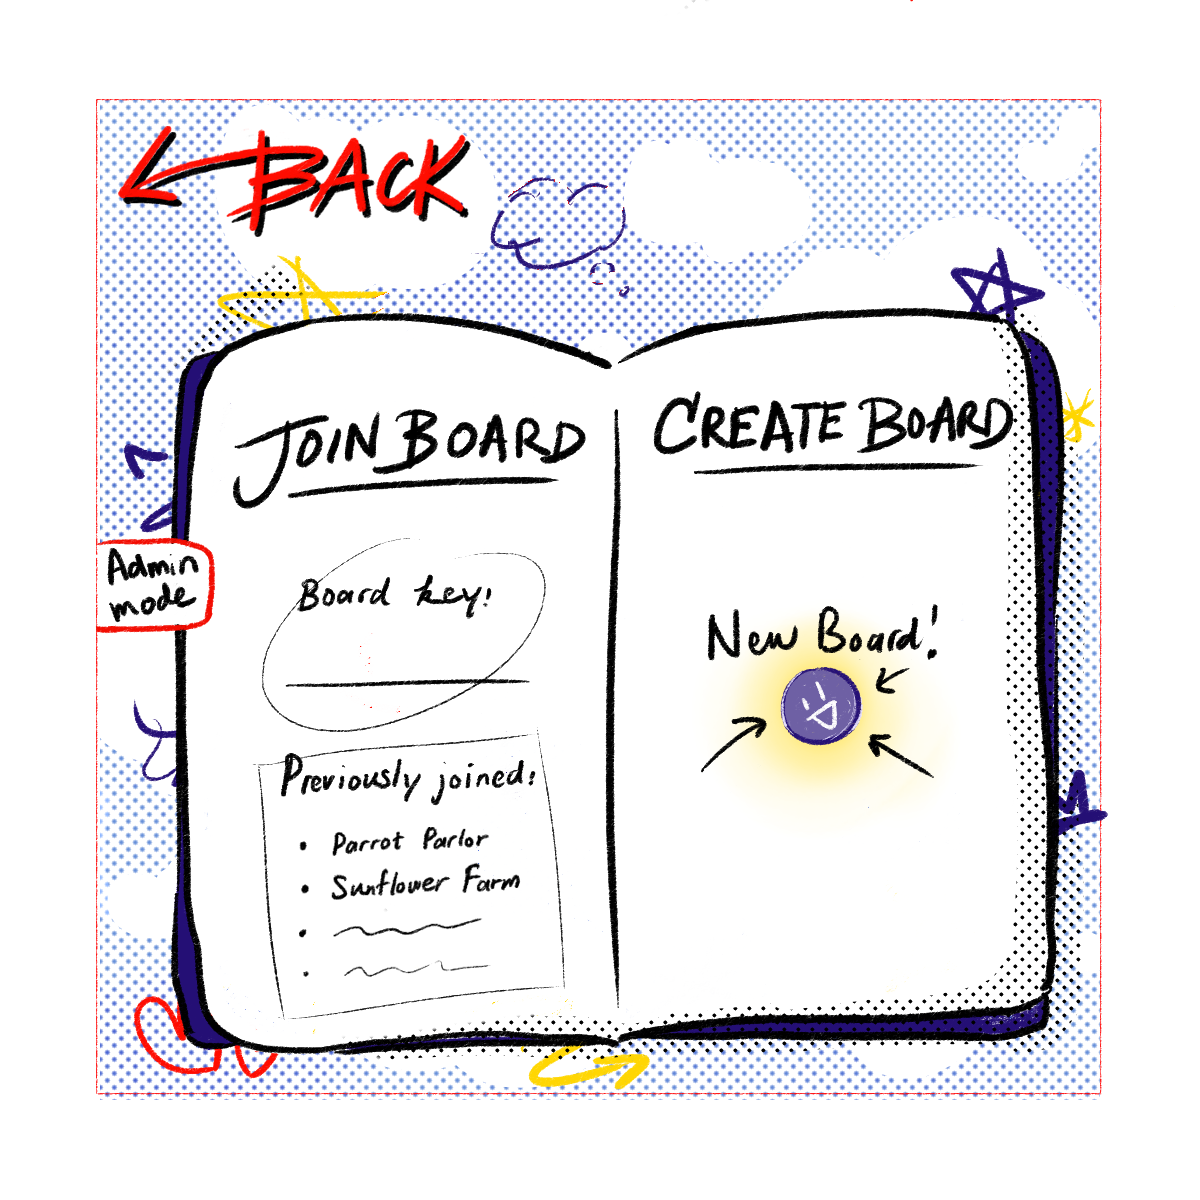 BACK
JOIN BOARD
Board key:
Previously joined:
• Parrot Parlor
• Sunflower Farm
CREATE BOARD
New Board!
Admin
mode